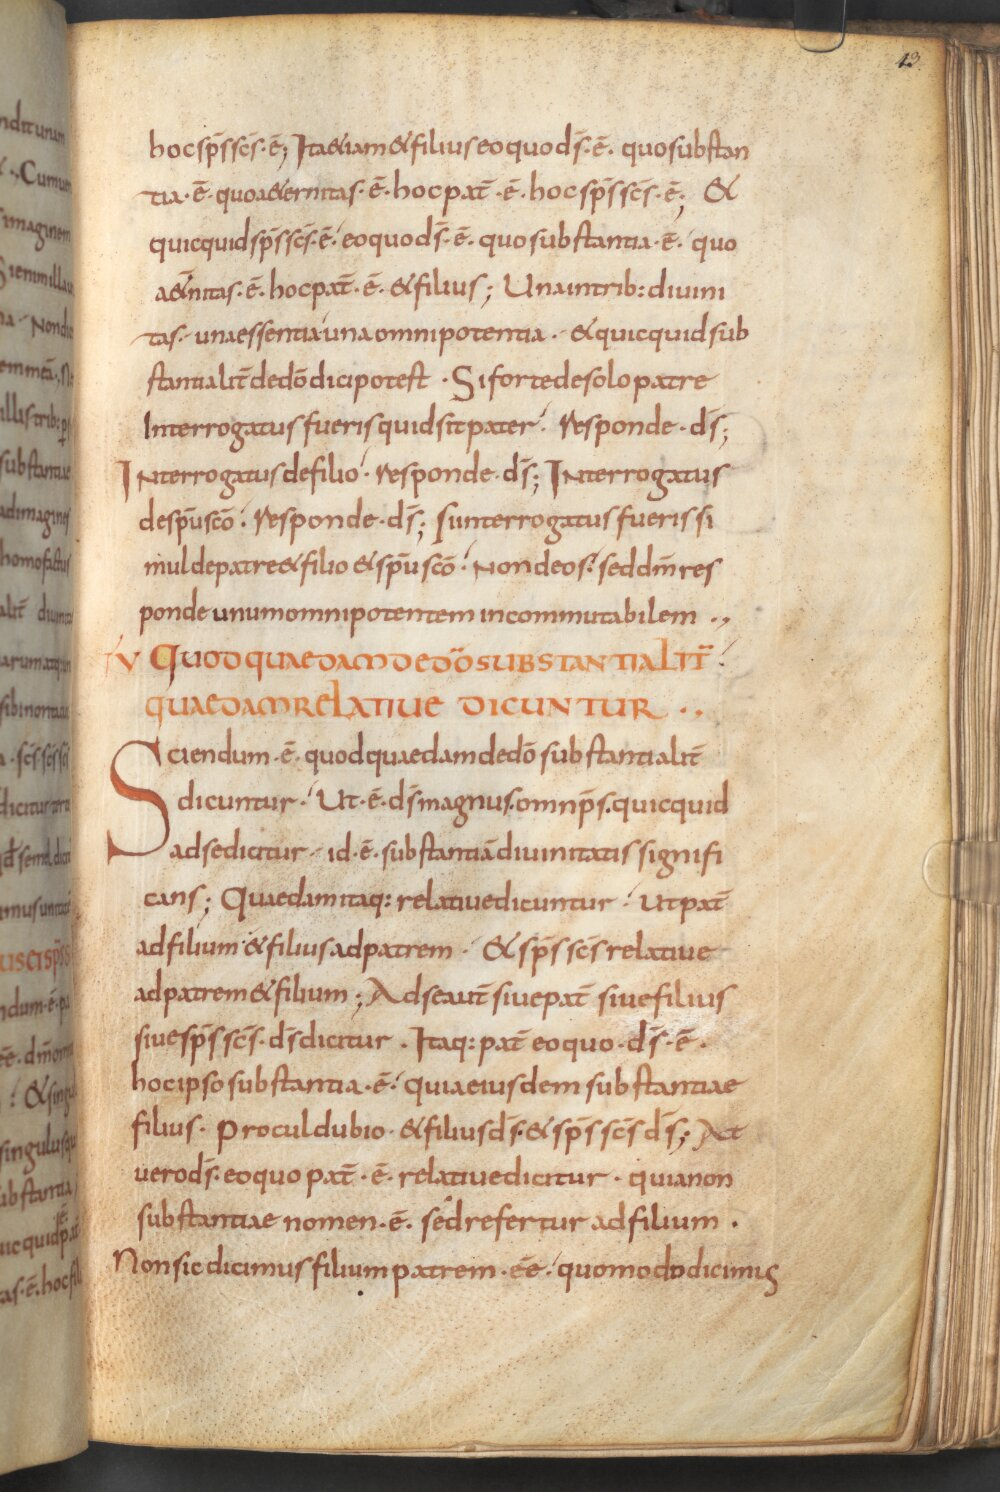 13
hoc sp̄s sc̄s · ē; Ita & iam & filius eo quo ds̄ · ē · quo substan
tia · ē · quo a&ernitas · ē · hoc pat̄ · ē · hoc sp̄s sc̄s · ē; &
quicquid sp̄s sc̄s · ē · eo quo ds̄ · ē · quo substantia · ē · quo
a&nitas · ē · hoc pat̄ · ē · & filius; Una in trib: divini
tas · una essentia una omnipotentia · & quicquid sub
stantialit̄ de dō dici potest · Si forte de solo patre
Interrogatus fueris quid sit pater · Responde · ds̄;
Interrogatus de filio · responde · ds̄; Interrogatus
de sp̄u scō · Responde · ds̄; Si interrogatus fueris si
mul de patre & filio & sp̄u scō · Non deos · sed dm̄ res
ponde unum omnipotentem incommutabilem ·,
V QUOD QUAEDAM DE DŌ SUBSTANTIALIT̄
QUAEDAM RELATIUE DICUNTUR ·,
Sciendum · ē · quod quaedam de dō substantialit̄
dicuntur · Ut · ē · ds̄ magnus · omnip̄s · quicquid
ad se dicitur · id · ē · substantiā divinitatis signifi
cans; Quaedam itaq: relative dicuntur · Ut pat̄
ad filium & filius ad patrem · & sp̄s sc̄s relative
ad patrem & filium; Ad se aut̄ sive pat̄ sive filius
sive sp̄s sc̄s · ds̄ dicitur · Itaq: pat̄ eo quo · ds̄ · ē ·
hoc ipso substantia · ē · quia eiusdem substantiae
filius · Procul dubio · & filius ds̄ · & sp̄s sc̄s ds̄; At
vero ds̄ · eo quo pat̄ · ē · relative dicitur · quia non
substantiae nomen · ē · sed refertur ad filium ·
Non sic dicimus filium patrem · ēe · quomodo dicimus